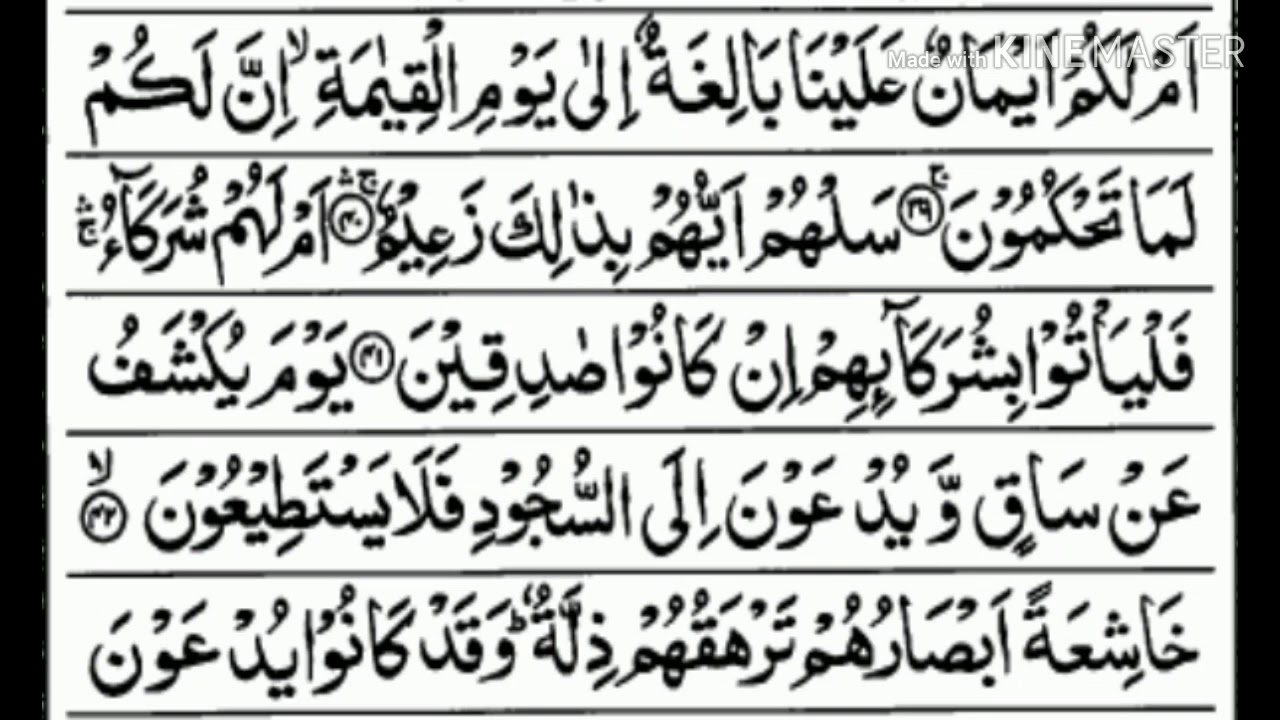 Made with KINEMASTER
اَمْ لَكُمْ اَيْمَانٌ عَلَيْنَا بَالِغَةٌ اِلٰى يَوْمِ الْقِيٰمَةِ ۙ اِنَّ لَكُمْ
لَمَا تَحْكُمُوْنَ ۚ ﴿۳۹﴾ سَلْهُمْ اَيُّهُمْ بِذٰلِكَ زَعِيْمٌ ۚۛ ﴿۴۰﴾ اَمْ لَهُمْ شُرَكَآءُ ۚۛ
فَلْيَاْتُوْا بِشُرَكَآئِهِمْ اِنْ كَانُوْا صٰدِقِيْنَ ﴿۴۱﴾ يَوْمَ يُكْشَفُ
عَنْ سَاقٍ وَّ يُدْعَوْنَ اِلَى السُّجُوْدِ فَلَا يَسْتَطِيْعُوْنَ ۙ ﴿۴۲﴾
خَاشِعَةً اَبْصَارُهُمْ تَرْهَقُهُمْ ذِلَّةٌ ؕ وَقَدْ كَانُوْا يُدْعَوْنَ